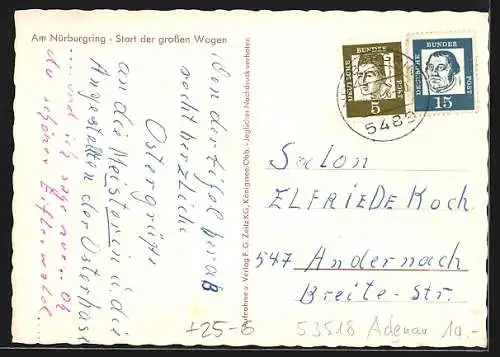 Am Nürburgring - Start der großen Wagen
Von der Eifel herab
recht herzliche
Ostergrüße
an die Meisterin u. die
Angestellten der Osterhase
.... und ich sage nur: Oh
du schöner Eifelwald....
Aufnahme u. Verlag F. G. Zeitz KG., Königsee/Obb. - Jeglicher Nachdruck verboten
DEUTSCHE BUNDESPOST
5
DEUTSCHE BUNDESPOST
15
548
Salon
ELFRIEDE Koch
547 Andernach
Breite-Str.
+25-6
53518 Adenau 10.-